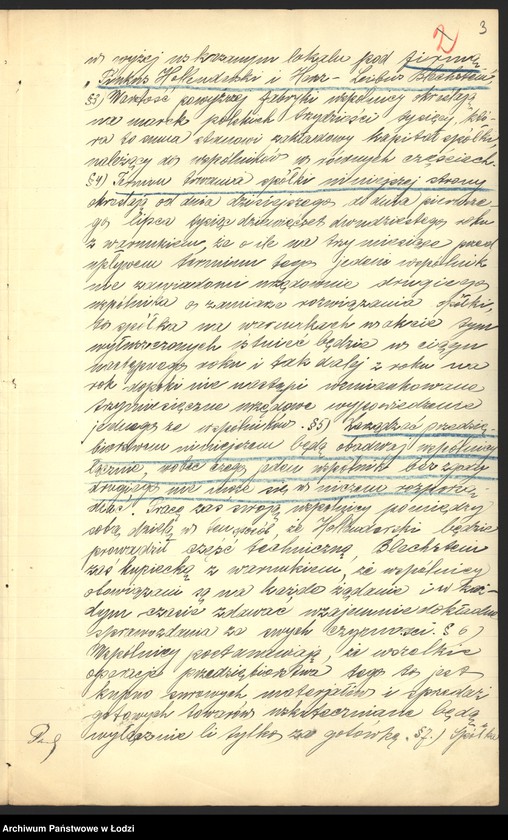 2 3
w wyżej wskazanym lokalu pod firmą
„Pinkus Hollenderski i Henz-Leibus Blachsztein"
§3) Wartość powyższej fabryki wspólnicy określają
na marek polskich trzydzieści tysięcy, któ-
ra to suma stanowi zakładowy kapitał spółki,
należący do wspólników w równych częściach.
§4) Termin trwania spółki niniejszej strony
określają od dnia dzisiejszego do dnia pierwsze-
go lipca tysiąc dziewięćset dwudziestego roku
z warunkiem, że o ile na trzy miesiące przed
upływem terminu tego jeden wspólnik
nie zawiadomi urzędownie drugiego
wspólnika o zamiarze rozwiązania spółki,
to spółka na warunkach w akcie tym
wyłuszczonych istnieć będzie w ciągu
następnego roku i tak dalej z roku na
rok dopóki nie nastąpi
trzymiesięczne urzędowe wypowiedzenie
jednego ze wspólników. §5) Zarządzać przedsię-
biorstwem niniejszem będą obadwaj wspólnicy
łącznie, wobec czego jeden wspólnik bez zgody
drugiego nie może się w niczem rozporzą-
dzać. Pracę zaś swoją wspólnicy pomiędzy
sobą dzielą w ten sposób, że Hollenderski będzie
prowadził część techniczną, Blachsztein
zaś kupiecką z warunkiem, że wspólnicy
obowiązani są na każde żądanie i w każ-
dym czasie zdawać wzajemnie dokładne
sprawozdania ze swych czynności. §6)
Wspólnicy postanawiają, iż wszelkie
operacje przedsiębiorstwa tego to jest
kupno surowych materjałów i sprzedaż
gotowych towarów uskuteczniane będą
wyłącznie li tylko za gotówkę. §7) Spółka
Archiwum Państwowe w Łodzi